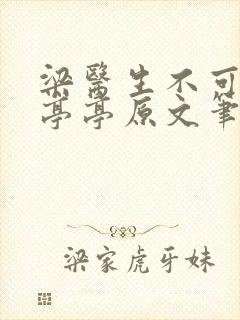 梁醫生不可
亭亭原文筆
梁家虎牙妹